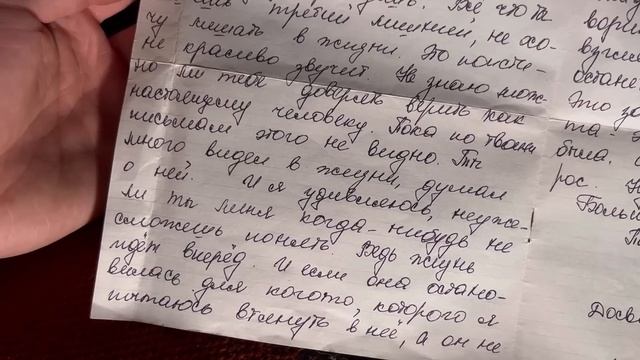 третий лишний, не хо-
чу мешать в жизни. Это поисти-
не красиво звучит. Не знаю мож-
но ли тебе доверять верить как
настоящему человеку. Пока по твоим
письмам этого не видно. Ты
много видел в жизни, думал
о ней. И я удивляюсь, неуже-
ли ты меня когда-нибудь не
сможешь понять. Ведь жизнь
идёт вперёд. И если она остано-
вилась для когото, которого я
пытаюсь втянуть в неё, а он не
вори
взгля
остане
Это за
та-
была.
рос.
Больш
Досв